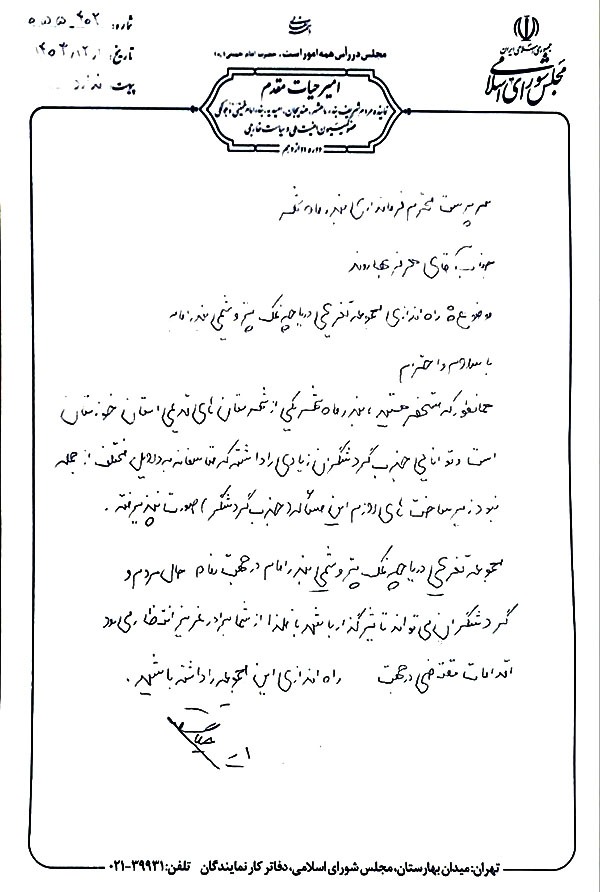 جمهوری اسلامی ایران
مجلس شورای اسلامی
مجلس در رأس همه امور است. حضرت امام خمینی (ره)
شماره:
تاریخ: ۱۴۰۳/۱۲/۱
پیوست: ندارد
امیر حیات مقدم
نماینده مردم شریف بندر ماهشهر، هندیجان، امیدیه، بندر امام خمینی
عضو کمیسیون امنیت ملی و سیاست خارجی
دوره دوازدهم
سرپرست محترم فرمانداری بندر ماهشهر
جناب آقای بهاروند
موضوع: راه اندازی مجموعه تفریحی دریاچه نمک پتروشیمی بندر امام
با سلام و احترام
همانطور که مستحضر هستید، بندر ماهشهر یکی از شهرستان های قدیمی استان خوزستان
است و توانایی جذب گردشگران زیادی را داشته که متاسفانه به دلایل مختلف از جمله
نبود زیرساخت های لازم این مسأله (جذب گردشگر) صورت نپذیرفته.
مجموعه تفریحی دریاچه نمک پتروشیمی بندر امام در جهت رفاه حال مردم و
گردشگران می تواند تاثیرگذار باشد لذا از شما برادر عزیز انتظار می رود
اقدامات مقتضی در جهت راه اندازی این مجموعه را داشته باشید.
تهران: میدان بهارستان، مجلس شورای اسلامی، دفاتر کار نمایندگان تلفن: ۳۹۹۳۱-۰۲۱